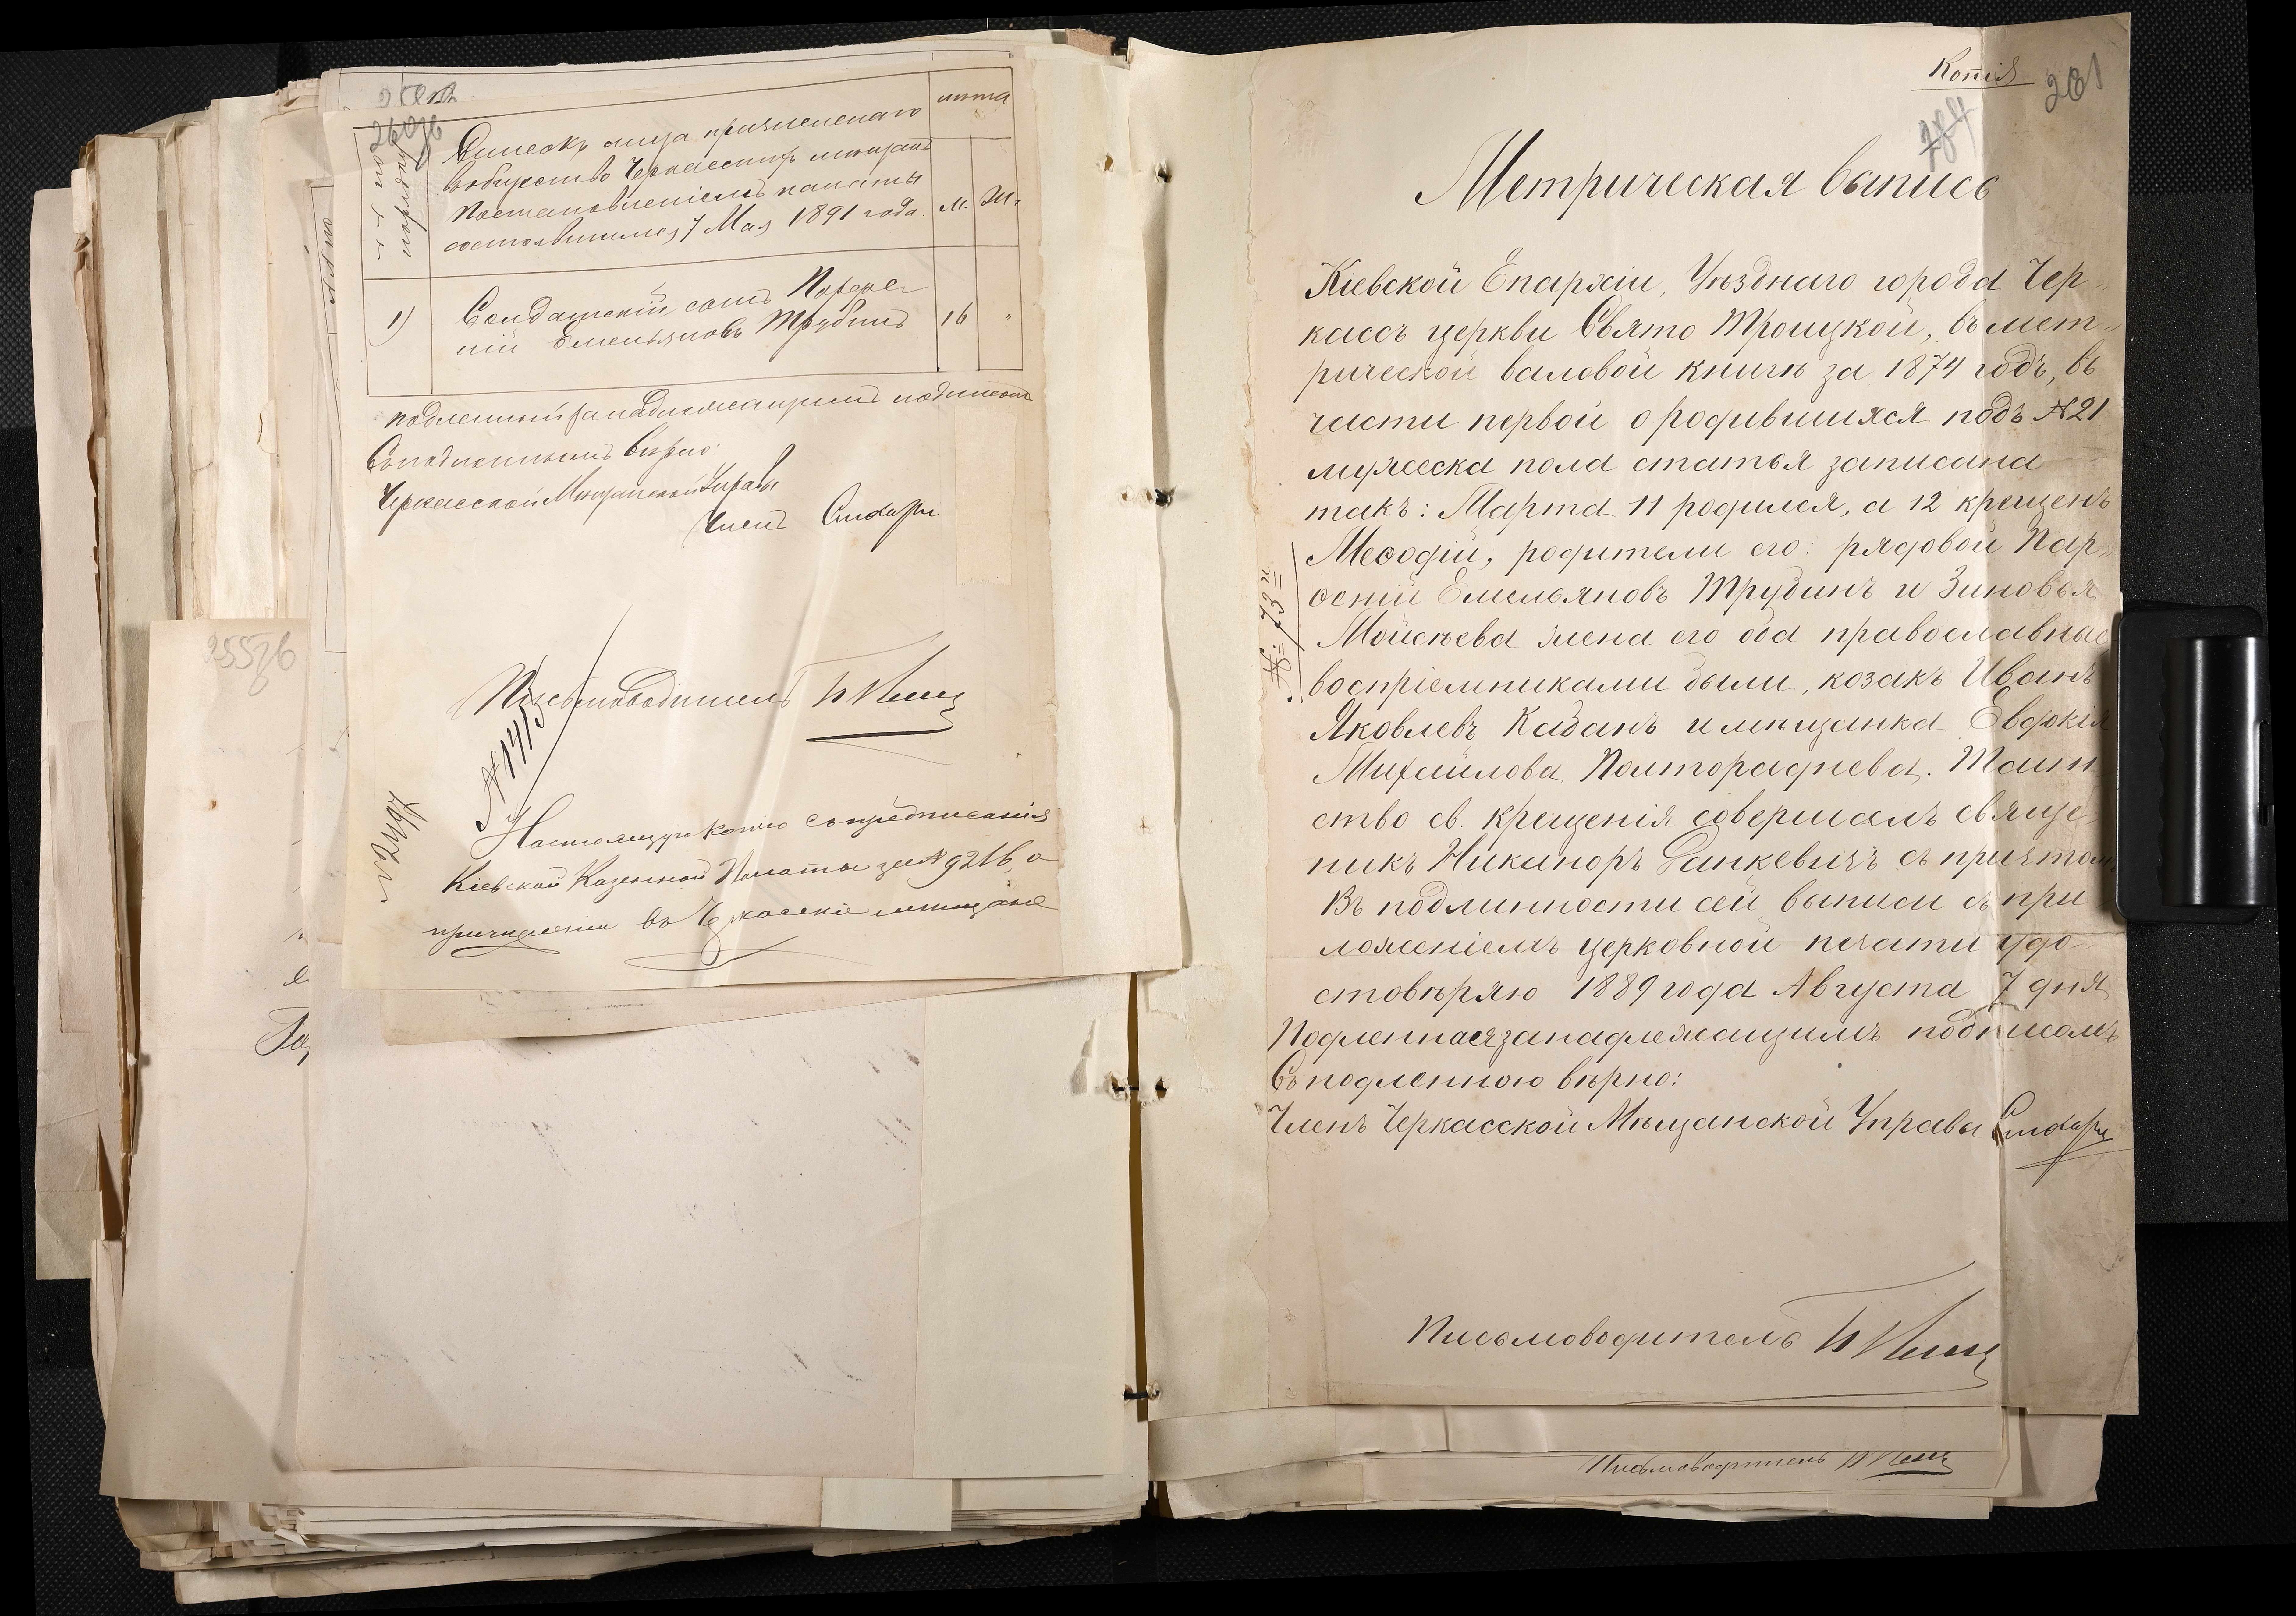 260об
Списокъ лица причисленаго
въ общество Черкасскихъ мещанъ
постановленіемъ палаты
состоявшимся 7 Мая 1891 года.
лѣта
М. Ж.
1)
Солдатскій сынъ Парфе-
ній Емельяновъ Трубинъ
16 "
подленный за надлежащимъ подписомъ
Съ подленнымъ вѣрно:
Черкасской Мѣщанской Управы
Членъ
Письмоводитель
№ 1415
Настоящую копію съ предписанія
Кіевской Казенной Палаты за № 9216, о
причисленіи въ Черкаскіе мещане
255об
Копія
281
284
Метрическая выпись
Кіевской Епархіи, Уѣзднаго города Чер-
кассъ церкви Свято Троицкой, въ мет-
рической валовой книгѣ за 1874 годъ, въ
части первой о родившихся подъ № 21
мужеска пола статья записана
такъ: Марта 11 родился, а 12 крещенъ
Меѳодій, родители его: рядовой Пар-
ѳеній Емельяновъ Трубинъ и Зиновья
Мойсѣева жена его оба православные
воспріемниками были, козакъ Иванъ
Яковлевъ Кабанъ и мѣщанка Евдокія
Михайлова Полтораднева. Таин
ство св. крещенія совершалъ священ
никъ Никаноръ Ганкевичъ съ причтом
Въ подлинности сей выписи съ при
ложеніемъ церковной печати удо-
стовѣряю 1889 года Августа 7 дня
Подленная за надлежащимъ подписомъ
Съ подленною вѣрно:
Членъ Черкасской Мѣщанской Управы
Письмоводитель
Письмоводитель